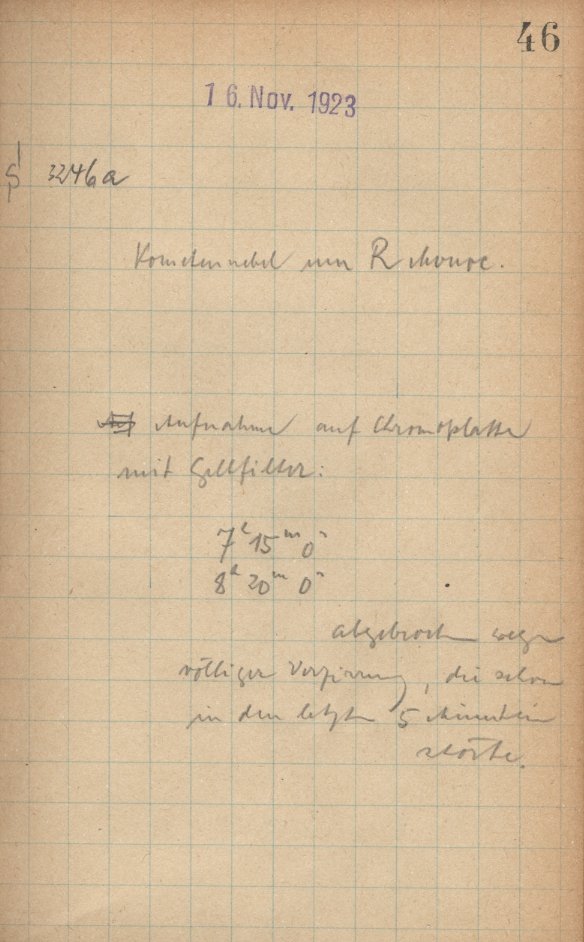 46
16. Nov. 1923
S 3246a
Kometennebel um R Monoc.
Aufnahme auf Chromoplatte
mit Gelbfilter:
7h 15m 0s
8h 20m 0s
abgebrochen wegen
völliger Verzirrung, die schon
in den letzten 5 Minuten
störte.